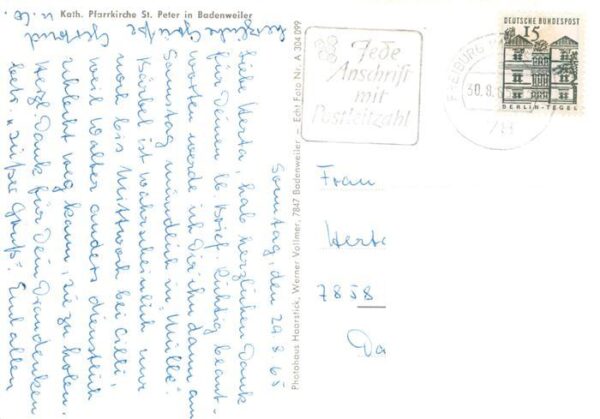 Kath. Pfarrkirche St. Peter in Badenweiler
Sonntag, den 29.8.65
Liebe Herta, hab herzlichen Dank
für Deinen lb. Brief. Richtig beant-
worten werde ich Dir ihn dann am
Samstag mündlich in „Mülle".
Bärbel ist wahrscheinlich nur
noch bis Mittwoch bei Cilli,
weil Walter anders dienstlich
schlecht weg kann, sie zu holen.
Herzl. Dank für Dein Drandenken
betr. „süßer Gruß". Euch allen
herzliche Grüße
Gertrud
u. G.
Photohaus Haarstick, Werner Vollmer, 7847 Badenweiler – Echt Foto Nr. A 304 099
Jede
Anschrift
mit
Postleitzahl
FREIBURG
30.8.6
DEUTSCHE BUNDESPOST
15
BERLIN-TEGEL
Frau
Herta
7858
Da